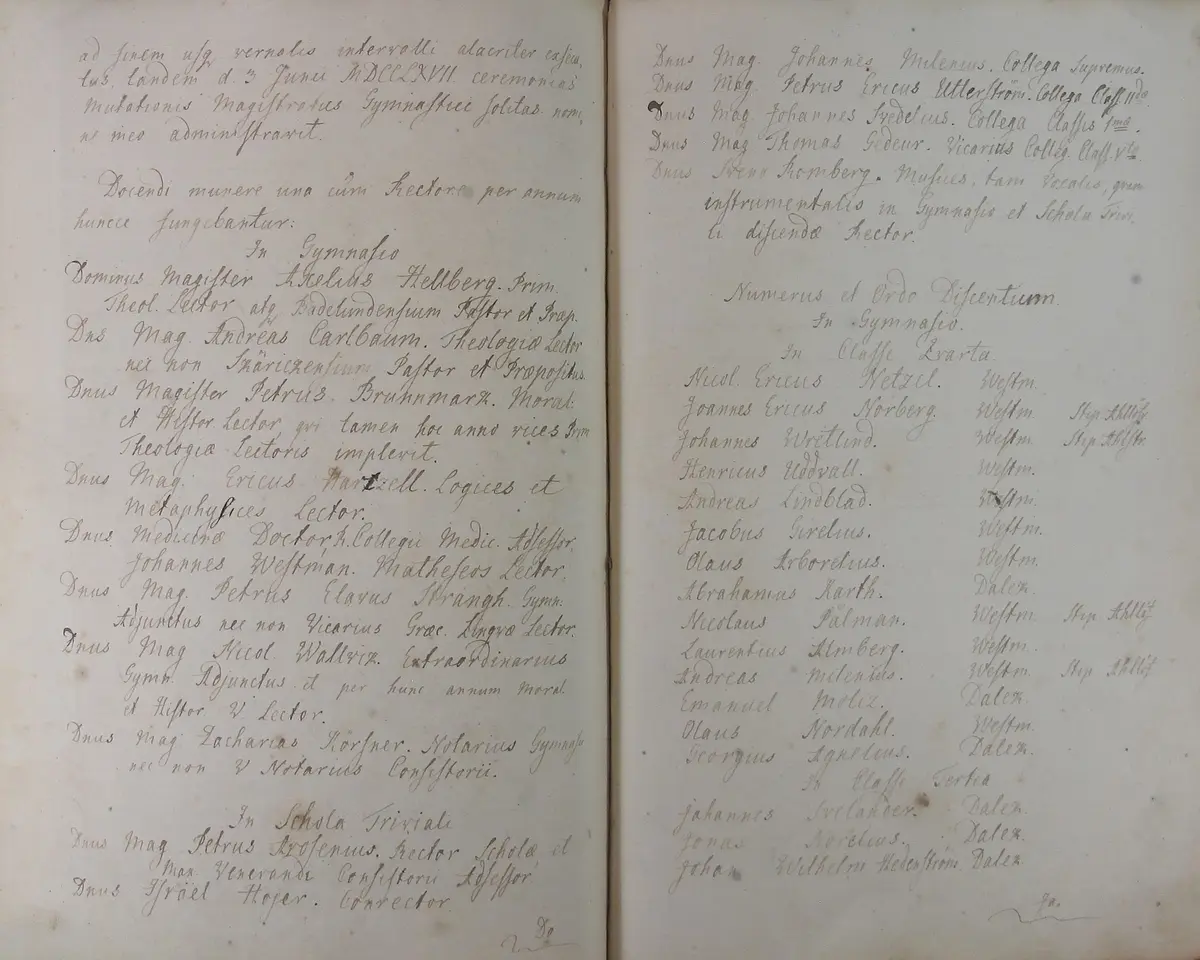 ad finem usq vernalis intervalli alacriter exsecu,
tus, tandem d. 3 Junii MDCCLXVII ceremonias
mutationis Magistratus Gymnastici solitas nomi,
ne meo administravit.
Docendi munere una cùm Rectore per annum
huncce fungebantur:
In Gymnasio
Dominus Magister Axelius Hellberg. Prim.
Theol. Lector atq Badelundensium Pastor et Præp.
Dns Mag. Andreas Carlbaum. Theologiæ Lector
nec non Skärickensium Pastor et Præpositus.
Dnus Magister Petrus Brunnmark. Moral.
et Histor Lector, qvi tamen hoc anno vices Prim
Theologiæ Lectoris implevit.
Dnus Mag. Ericus Hartzell. Logices et
Metaphysices Lector.
Dnus Medicinæ Doctor, R. Collegii Medic. Adsessor,
Johannes Westman. Matheseos Lector,
Dnus Mag. Petrus Elavus Strangh. Gymn.
Adjunctus nec non Vicarius Græc. Lingvæ Lector.
Dnus Mag Nicol. Wallviz. Extraordinarius
Gymn. Adjunctus et per hunc annum Moral.
et Histor V. Lector.
Dnus Mag Zacharias Körsner. Notarius Gymnasii
nec non V Notarius Consistorii.
In Schola Triviali
Dnus Mag Petrus Arosenius. Rector Scholæ et
Max Venerandi Consistorii Adsessor
Dnus Israël Hojer. Conrector.
Dn
Dnus Mag. Johannes Milenius. Collega Supremus.
Dnus Mag. Petrus Ericus Utterström. Collega Class IIdæ
Dnus Mag. Johannes Svedelius. Collega Classis 1mæ.
Dnus Mag Thomas Gedeur. Vicarius Colleg. Class. Vtæ
Dnus Sveno Romberg. Musices, tam Vocalis, qvam
instrumentalis in Gymnasio et Schola Trivi,
li discendæ Rector.
Numerus et Ordo Discentium.
In Gymnasio.
In Classe Qvarta
Nicol. Ericus Netzel. Westm.
Joannes Ericus Norberg. Westm. Stip. Ahllöf
Johannes Wretlind. Westm. Stip. Ahlstr
Henricus Uddvall. Westm.
Andreas Lindblad. Westm.
Jacobus Girelius. Westm.
Olaus Arborelius. Westm.
Abrahamus Karth. Dalek.
Nicolaus Pålman. Westm. Stip Ahllöf
Laurentius Almberg. Westm.
Andreas Milenius. Westm. Stip Ahllöf
Emanuel Moliz. Dalek.
Olaus Nordahl. Westm.
Georgius Agnelius. Dalek.
In Classe Tertia
Johannes Svelander. Dalek.
Jonas Norelius. Dalek.
Johan Wilhelm Hedenström. Dalek
Ja.